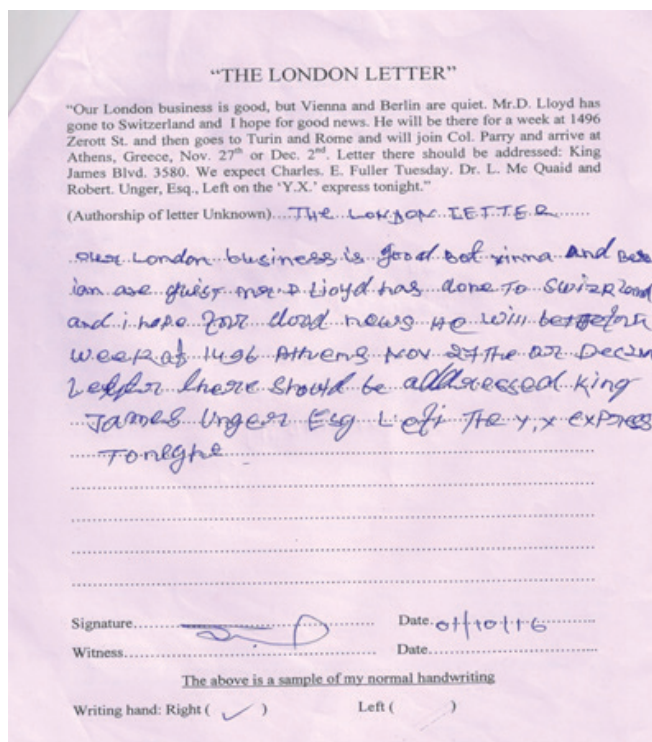 "THE LONDON LETTER"
"Our London business is good, but Vienna and Berlin are quiet. Mr.D. Lloyd has
gone to Switzerland and I hope for good news. He will be there for a week at 1496
Zerott St. and then goes to Turin and Rome and will join Col. Parry and arrive at
Athens, Greece, Nov. 27th or Dec. 2nd. Letter there should be addressed: King
James Blvd. 3580. We expect Charles. E. Fuller Tuesday. Dr. L. Mc Quaid and
Robert. Unger, Esq., Left on the 'Y.X.' express tonight."
(Authorship of letter Unknown)....THE LONDON LETTER
our London business is good bot vinna and Ber
ian are quiest mr D Lioyd has done To
and i hope four dood news He will
week at 1496 Athens Nov 27the or
Letter there should be addressed King
James Unger Esq Left The y,x express
Toneghe
Signature
Date. 01/10/16
Witness
Date
The above is a sample of my normal handwriting
Writing hand: Right ( ✓ ) Left ( )